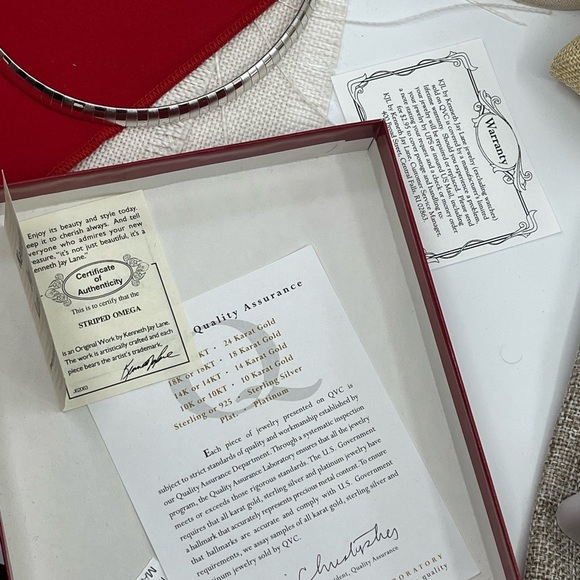 Enjoy its beauty and style today.
eep it to cherish always. And tell
veryone who admires your new
easure, "it's not just beautiful, it's a
enneth Jay Lane."
Certificate
of
Authenticity
This is to certify that the
STRIPED OMEGA
is an Original Work by Kenneth Jay Lane.
The work is artistically crafted and each
piece bears the artist's trademark.
Warranty
KJL by Kenneth Jay Lane jewelry (excluding watches)
sold on QVC is covered by a manufacturer's limited
lifetime warranty. Should you experience a problem
your jewelry will be repaired or replaced. Please send
your jewelry by UPS or insured US Mail, including
a note stating your request and a check or money order
for $2.95 to cover postage and handling to:
Street, Central Falls, RI 02863
Quality Assurance
KT • 24 Karat Gold
18K or 18KT • 18 Karat Gold
14K or 14KT • 14 Karat Gold
10K or 10KT • 10 Karat Gold
Sterling or 925 • Sterling Silver
Plat • Platinum
Each piece of jewelry presented on QVC is
subject to strict standards of quality and workmanship established by
our Quality Assurance Department. Through a systematic inspection
program, the Quality Assurance Laboratory ensures that all the jewelry
meets or exceeds those rigorous standards. The U.S. Government
requires that all karat gold, sterling silver and platinum jewelry have
a hallmark that accurately represents precious metal content. To ensure
that hallmarks are accurate and comply with U.S. Government
requirements, we assay samples of all karat gold, sterling silver and
tinum jewelry sold by QVC.
Christopher
dent, Quality Assurance
ORATORY
uality